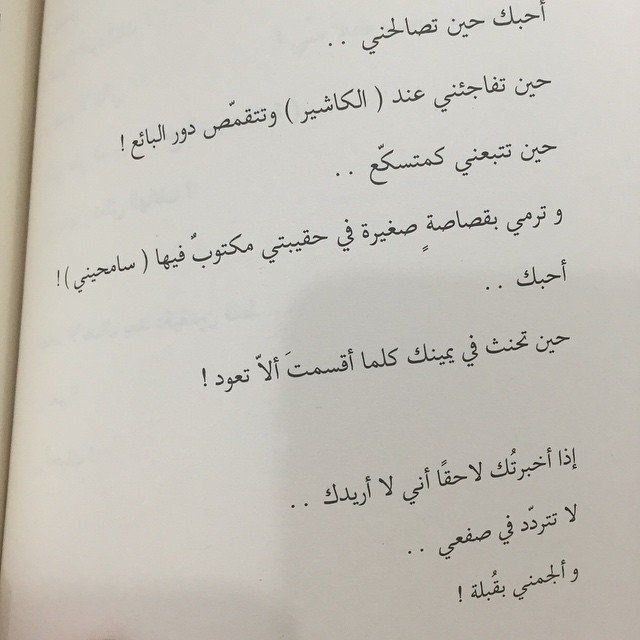 أحبك حين تصالحني . .
حين تفاجئني عند ( الكاشير ) وتتقمّص دور البائع !
حين تتبعني كمتسكّع . .
و ترمي بقصاصةٍ صغيرة في حقيبتي مكتوبٌ فيها ( سامحيني ) !
أحبك . .
حين تحنث في يمينك كلما أقسمتَ ألاّ تعود !
إذا أخبرتُك لاحقًا أني لا أريدك . .
لا تتردّد في صفعي . .
و ألجمني بقُبلة !